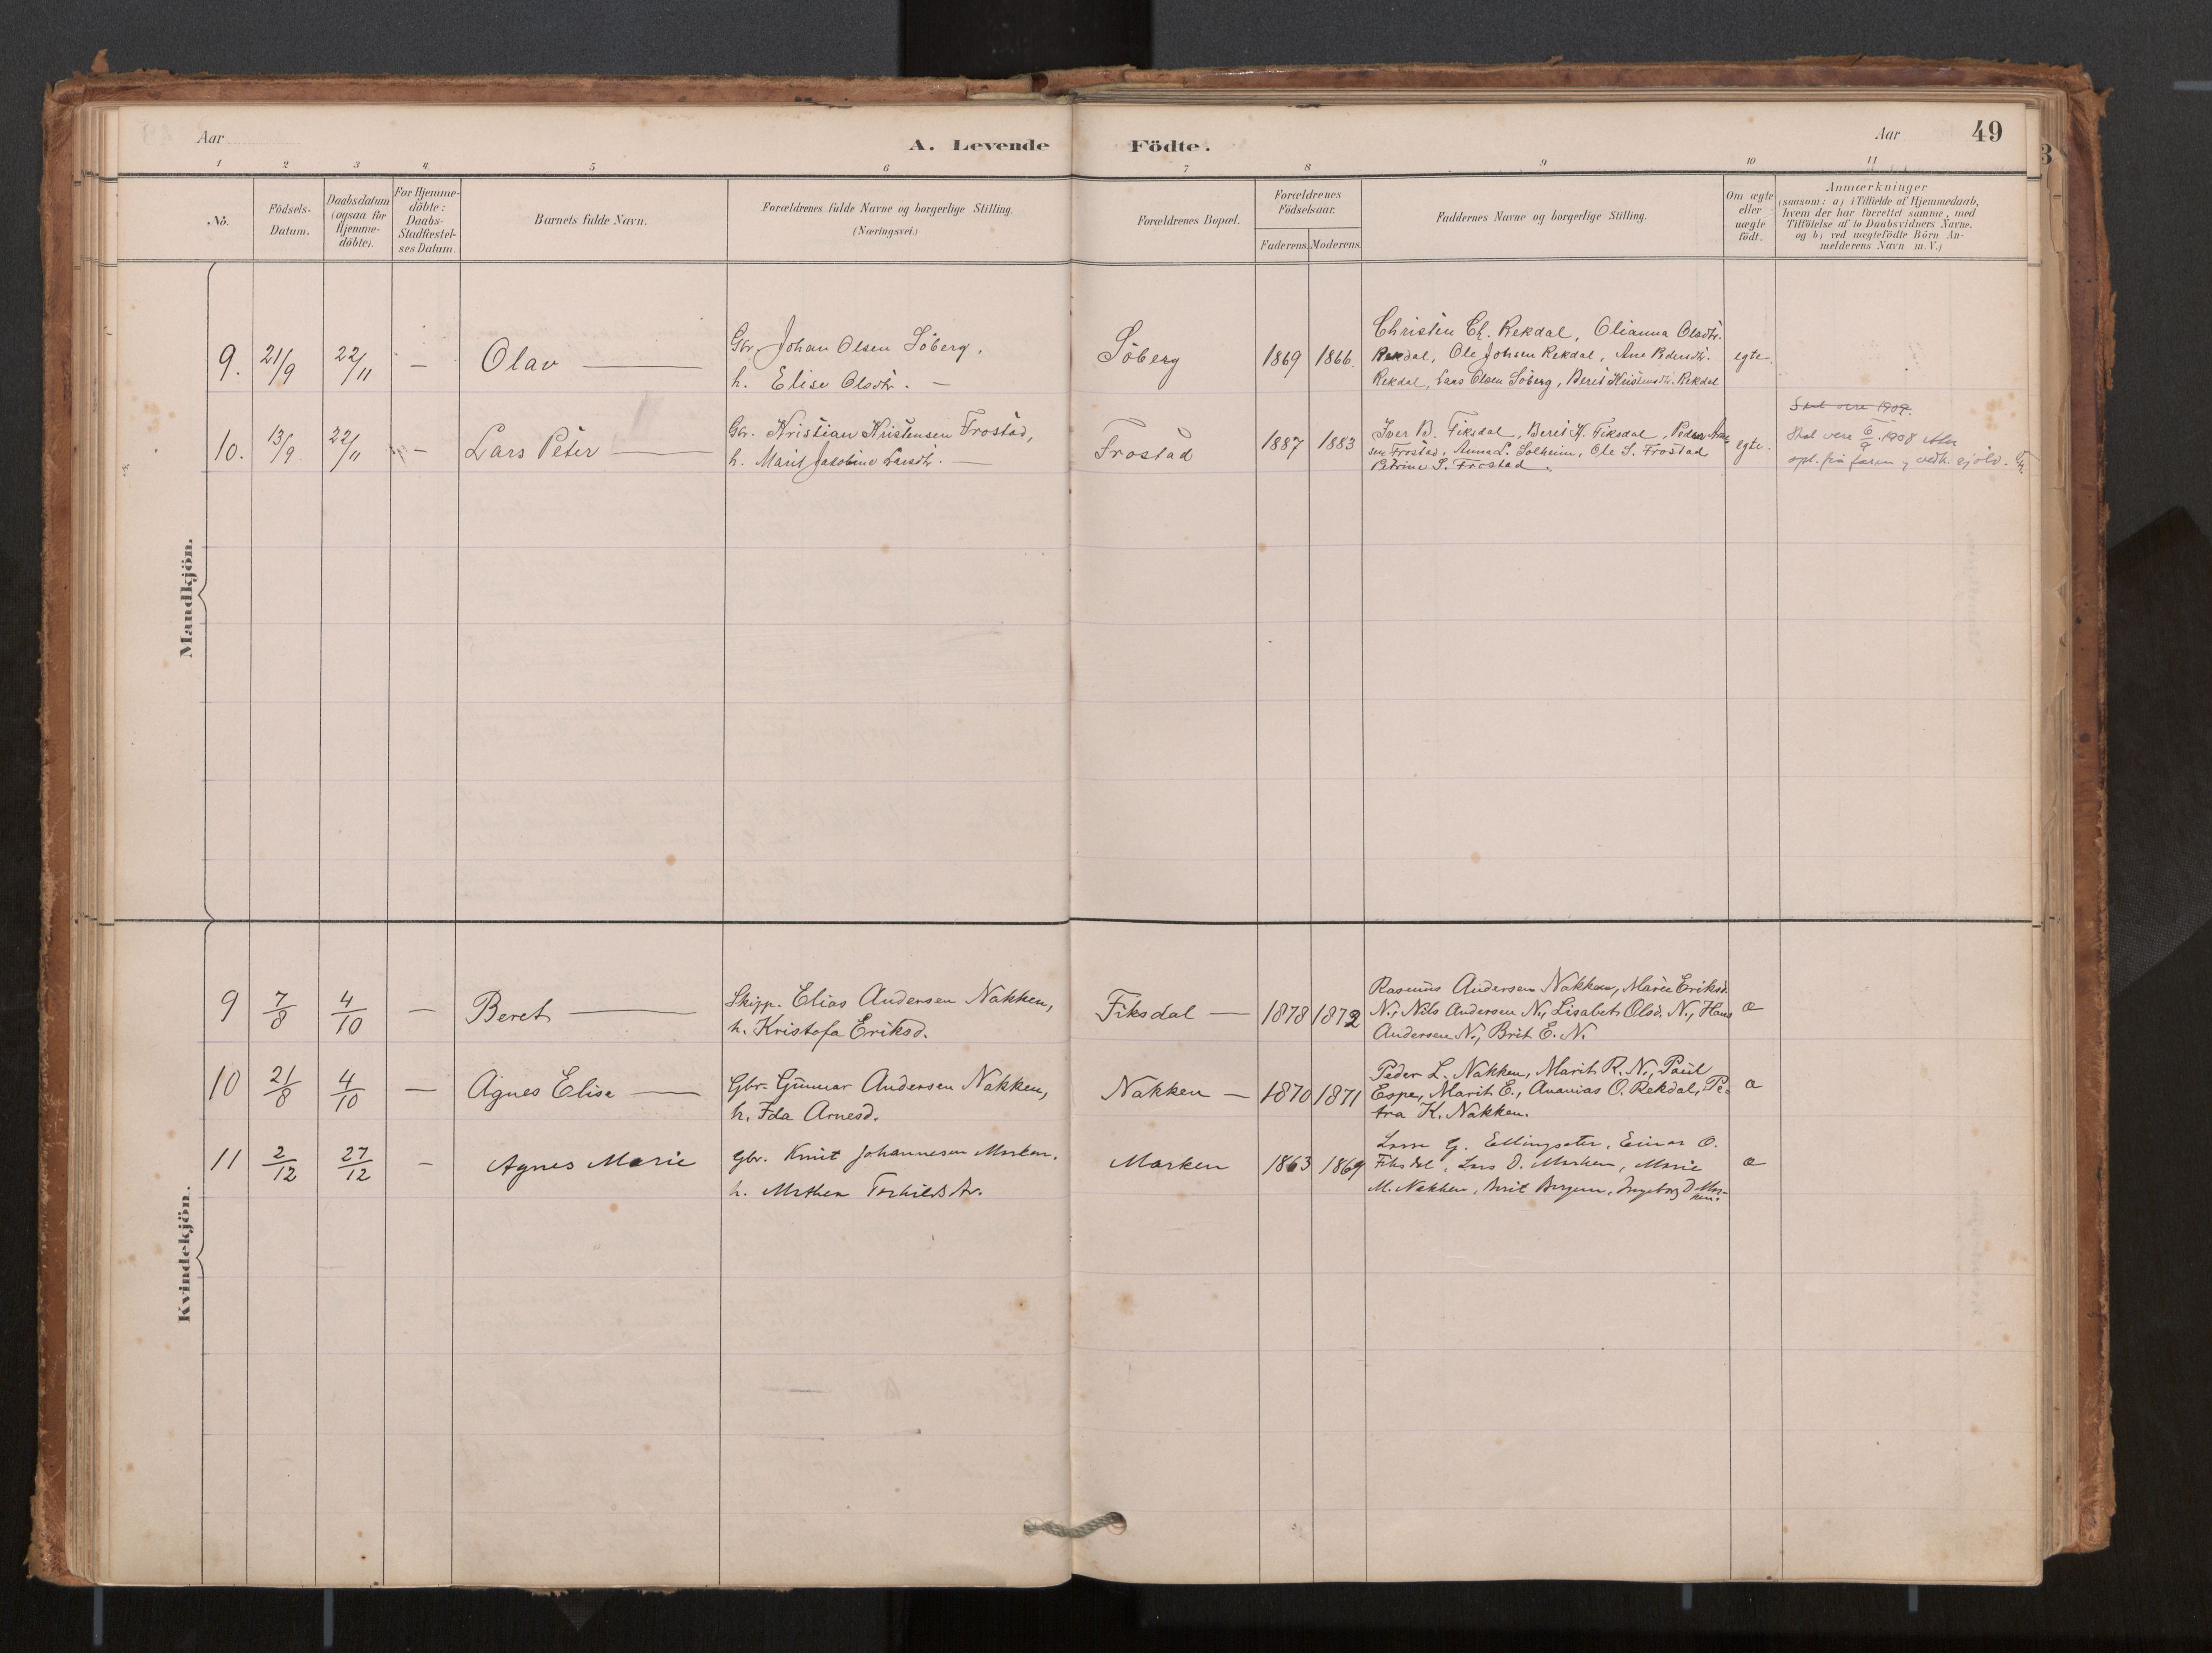 Aar
A. Levende Födte.
Aar
49
3
1 2 3 4 5 6 7 8 9 10 11
No.
Födsels-
Datum.
Daabsdatum
(ogsaa for
Hjemme-
döbte).
For Hjemme-
döbte:
Daabs-
Stadfæstel-
ses Datum.
Barnets fulde Navn.
Forældrenes fulde Navne og borgerlige Stilling.
(Næringsvei.)
Forældrenes Bopæl.
Forældrenes
Födselsaar.
Faderens.
Moderens.
Faddernes Navne og borgerlige Stilling.
Om ægte
eller
uægte
födt.
Anmærkninger
(saasom: a) i Tilfælde af Hjemmedaab,
hvem der har forrettet samme, med
Tilföielse af to Daabsvidners Navne.
og b) ved uægtefödte Börn An-
melderens Navn m. V.)
Mandkjön.
9.
21/9
22/11
—
Olav —
Gbr. Johan Olsen Söberg.
h. Elise Olsdtr. —
Söberg
1869
1866.
Christen Ch. Rekdal, Olianna Olsdtr.
Rekdal, Ole Johsen Rekdal, Ane Pedersdtr.
Rekdal, Lars Olsen Söberg, Beret Kristensdtr. Rekdal
egte.
10.
13/9
22/11
—
Lars Peter —
Gbr. Kristian Kristensen Frostad,
h. Marit Jakobine Larsdtr. —
Frostad
1887
1883
Iver B. Fiksdal, Beret K. Fiksdal, Peder
sen Frostad, Anna L. Solheim, Ole S. Frostad
Petrine S. Frostad.
egte.
Skal vere 1909.
Skal vere 6/9 1908 etter
opl. fra faren
Kvindekjön.
9
7/8
4/10
—
Beret —
Skipp. Elias Andersen Nakken,
h. Kristofa Eriksd.
Fiksdal —
1878
1872
Rasmus Andersen Nakken, Marie Eriksd.
N., Nils Andersen N., Lisabet Olsd. N., Hans
Andersen N., Brit E. N.
æ
10
21/8
4/10
—
Agnes Elise —
Gbr. Gunnar Andersen Nakken,
h. Ida Arnesd.
Nakken —
1870
1871
Peder L. Nakken, Marit R. N., Paul
Espe, Marit E., Ananias O. Rekdal, Pe-
tra K. Nakken.
æ
11
2/12
27/12
—
Agnes Marie
Gbr. Knut Johannesen Morken.
h. Mathea Torkildsdtr.
Morken
1863
1869
G. Ellingseter, Einar O.
Fiksdal, Lars D. Morken, Marie
M. Nakken, Berit Bergem, Ingeborg D. Mor-
ken.
æ